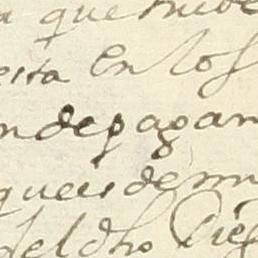 a que
esta en los
n de pagar
que es de mi
del dho Dieg